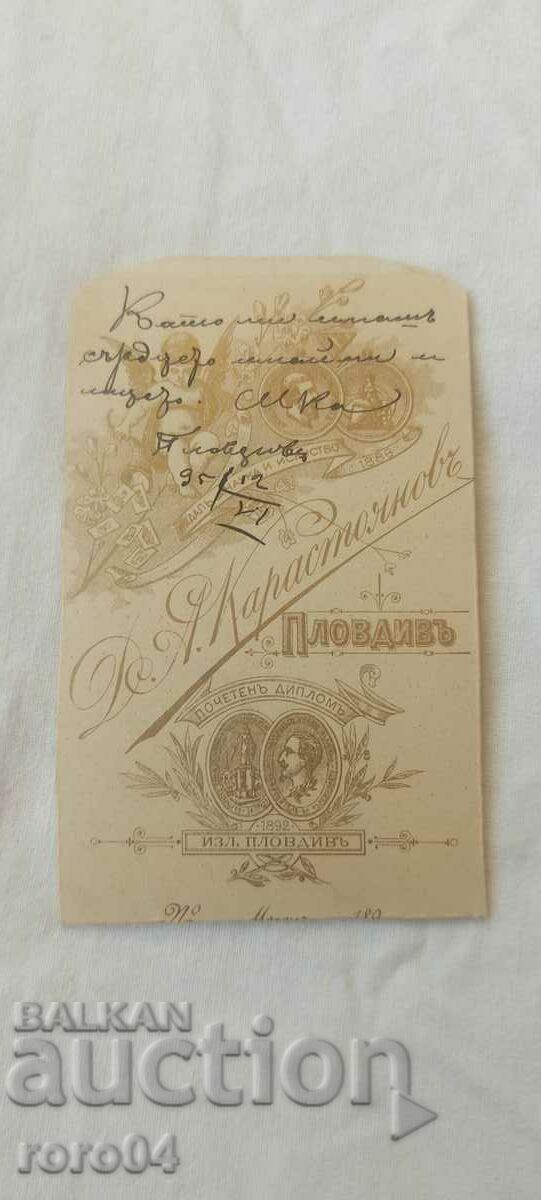 Като ми имашъ
сърдцето имай ми и
лицето.
Пловдивъ
95 12/VI
НАУКА И ИСКУСТВО
1888
Д. А. Карастояновъ
ПЛОВДИВЪ
ПОЧЕТЕНЪ ДИПЛОМЪ
1892
ИЗЛ. ПЛОВДИВЪ
№ 189
BALKAN
auction
roro04